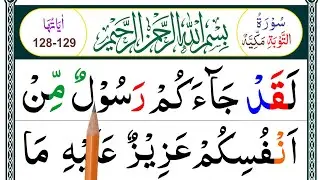 سُوْرَةُ
التَّوْبَةِ مَكِّيَّةٌ
بِسْمِ اللّٰهِ الرَّحْمٰنِ الرَّحِيْمِ
اٰيَاتُهَا
128-129
لَقَدْ جَآءَكُمْ رَسُوْلٌ مِّنْ
اَنْفُسِكُمْ عَزِيْزٌ عَلَيْهِ مَا